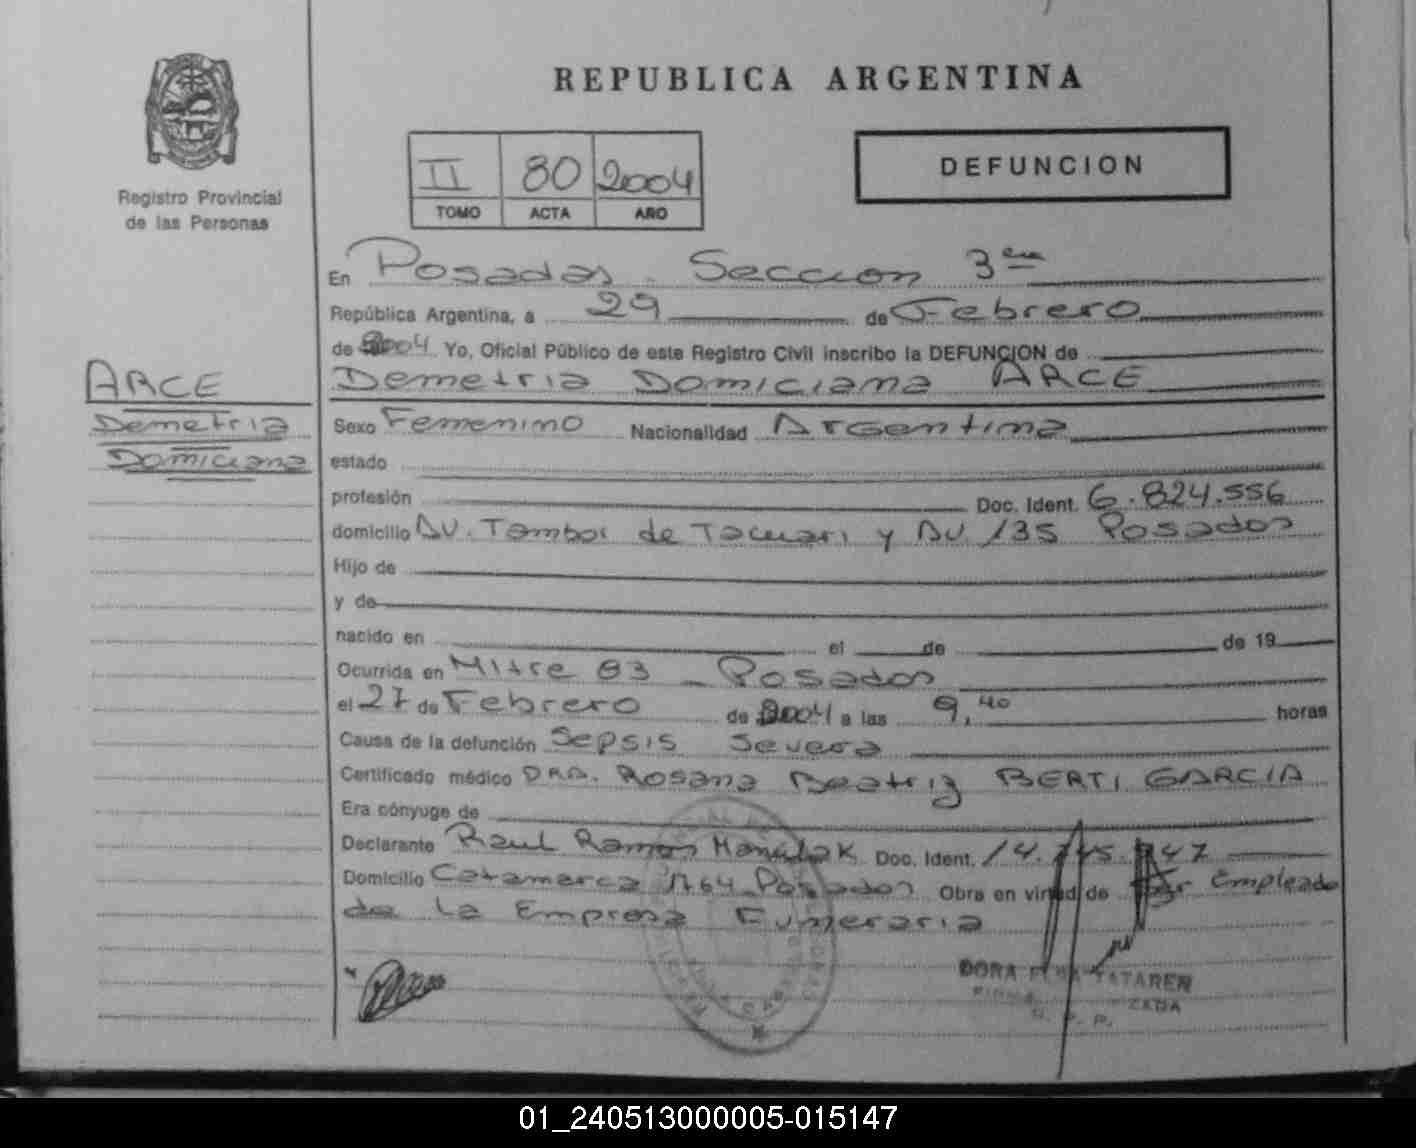 REPUBLICA ARGENTINA
Registro Provincial
de las Personas
II 80 2004
TOMO ACTA AÑO
DEFUNCION
En Posadas - Seccion 3era
República Argentina, a 29 de Febrero
de 2004 Yo, Oficial Público de este Registro Civil inscribo la DEFUNCION de
Demetria Domiciana ARCE
ARCE
Demetria
Domiciana
Sexo Femenino Nacionalidad Argentina
estado
profesión Doc. Ident. 6.824.556
domicilio AV. Tambor de Tacuari y AV. 135 Posadas
Hijo de
y de
nacido en el de de 19
Ocurrida en Mitre 83 - Posadas
el 27 de Febrero de 2004 a las 9,40 horas
Causa de la defunción Sepsis Severa
Certificado médico DRA. Rosana Beatriz BERTI GARCIA
Era cónyuge de
Declarante Raul Ramon Doc. Ident.
Domicilio Catamarca 1764 Posadas Obra en virtud de Ser Empleado
de la Empresa Funeraria
DORA TATAREN
01_240513000005-015147